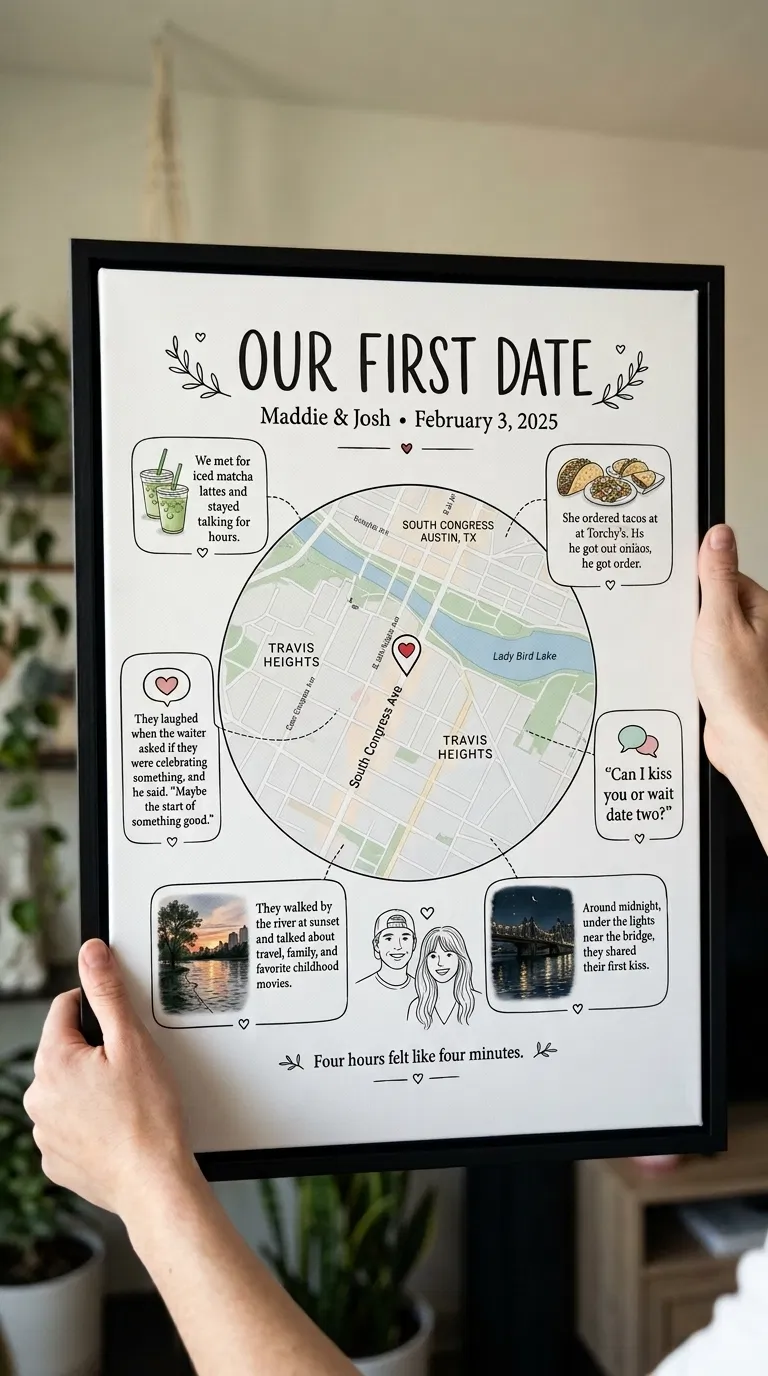 OUR FIRST DATE
Maddie & Josh • February 3, 2025
We met for
iced matcha
lattes and
stayed
talking for
hours.
She ordered tacos at
at Torchy's. Hs
he got out
he got order.
SOUTH CONGRESS
AUSTIN, TX
TRAVIS
HEIGHTS
Lady Bird Lake
South Congress Ave
TRAVIS
HEIGHTS
They laughed
when the waiter
asked if they
were celebrating
something, and
he said. "Maybe
the start of
something good."
"Can I kiss
you or wait
date two?"
They walked by
the river at sunset
and talked about
travel, family, and
favorite childhood
movies.
Around midnight,
under the lights
near the bridge,
they shared
their first kiss.
Four hours felt like four minutes.